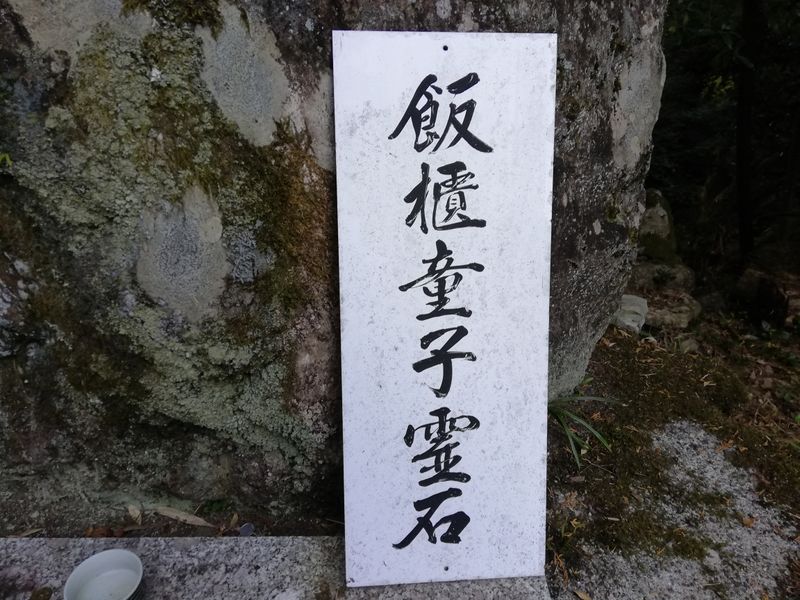 飯櫃童子霊石